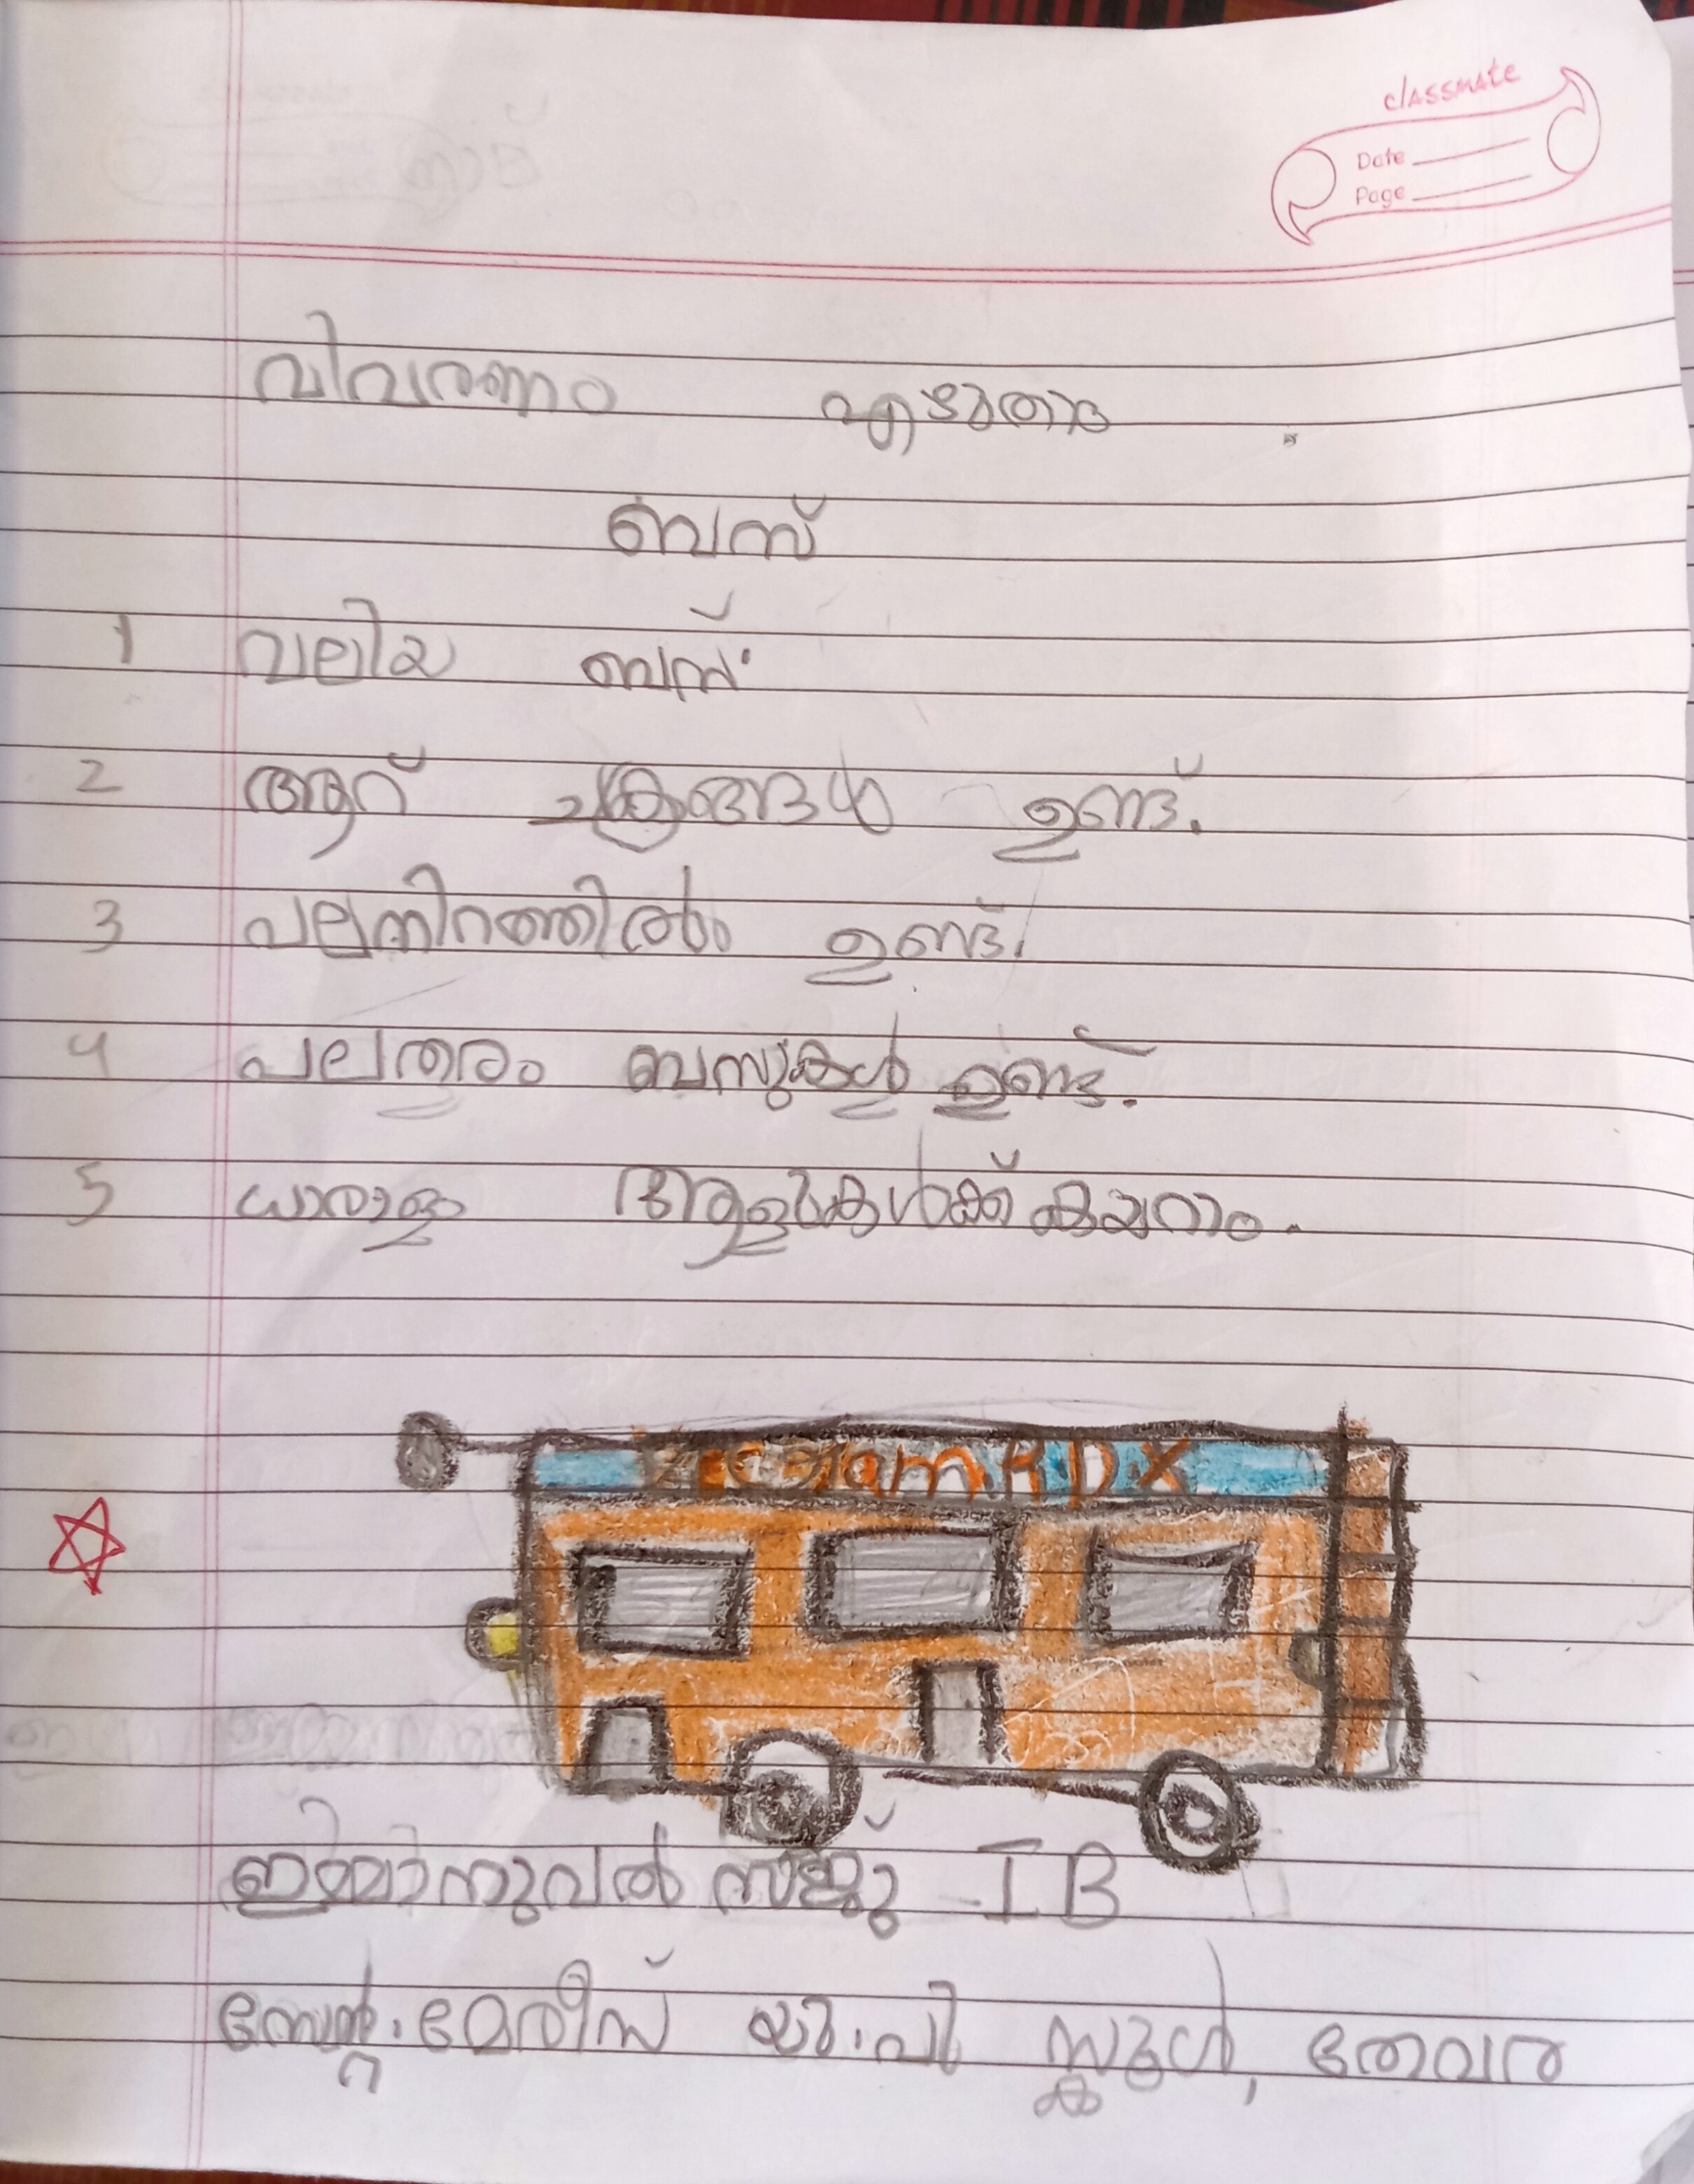 classmate
Date
Page
വിവരണം എഴുതാം
ബസ്
1 വലിയ ബസ്.
2 ആറ് ചക്രങ്ങൾ ഉണ്ട്.
3 പലനിറത്തിൽ ഉണ്ട്.
4 പലതരം ബസുകൾ ഉണ്ട്.
5 ധാരാളം ആളുകൾക്ക് കയറാം.
R D X
ഇമ്മാനുവൽ സജു I B
സേന്റ്. മേരീസ് യു.പി സ്കൂൾ, തേവര